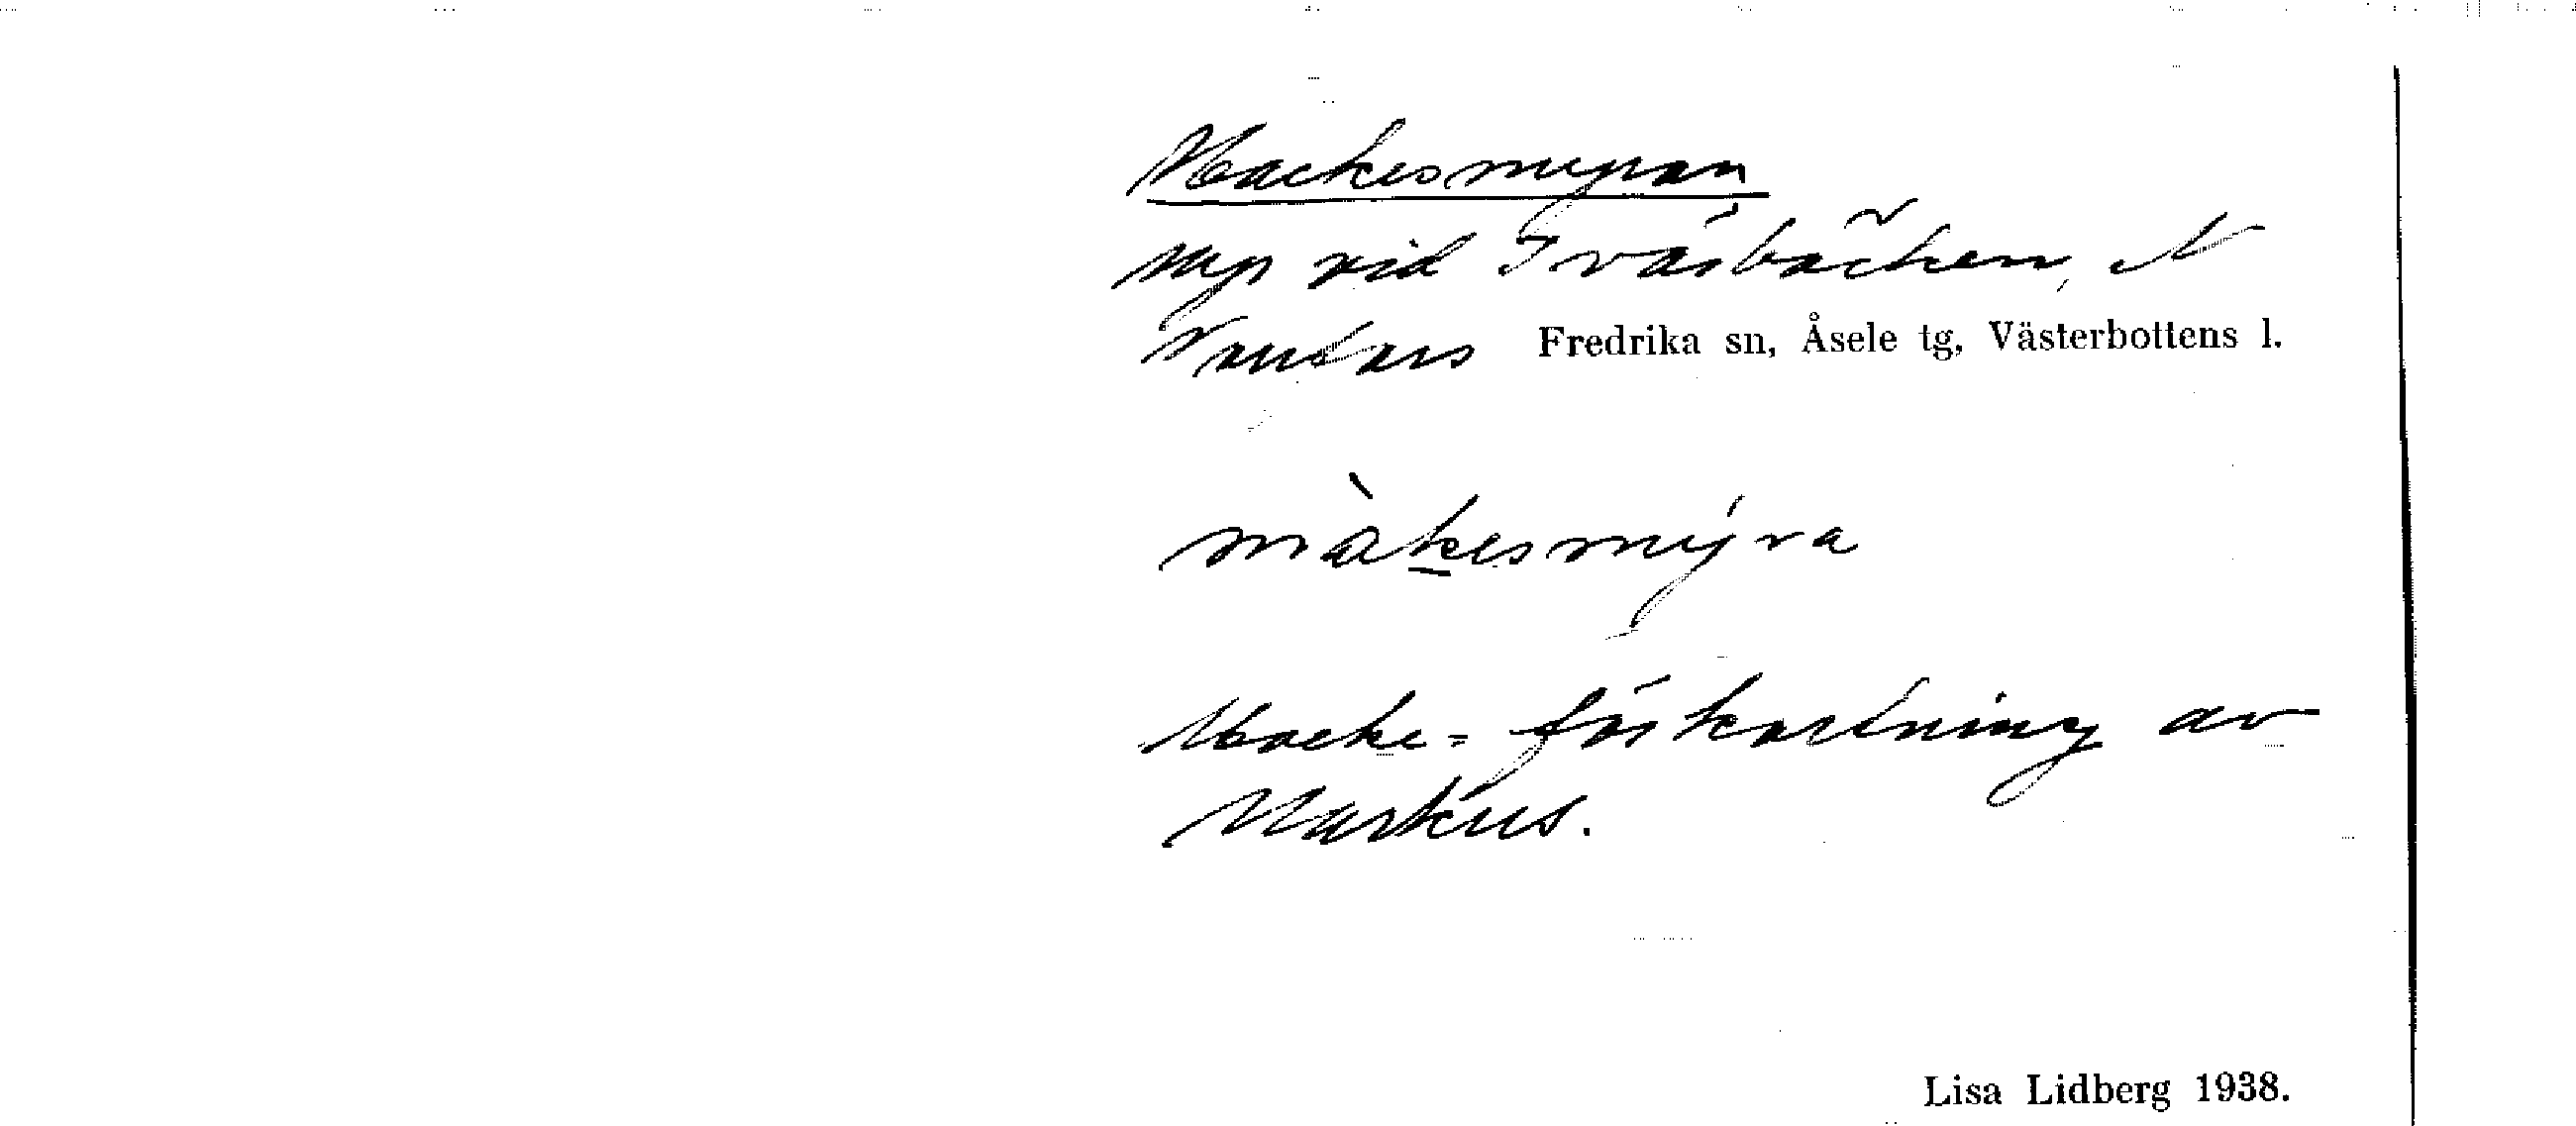 Mackesmyran
myr vid Tväsbäcken, N
Fredrika sn, Åsele tg, Västerbottens l.
màkesmýra
Macke = förkortning av
Markus.
Lisa Lidberg 1938.